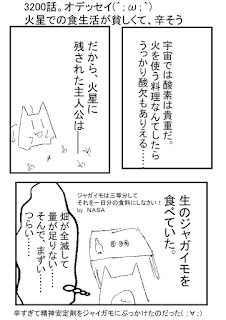 3200話。オデッセイ(´;ω;`)
火星での食生活が貧しくて、辛そう
宇宙では酸素は貴重だ。
火を使う料理なんてしたら
うっかり酸欠もありえる……
だから、火星に
残された主人公は━━
生のジャガイモを
食べていた。
ジャガイモは三等分して
それを一日分の食料にしなさい!
by NASA
畑が全滅して
量が足りない……
そんで、まずい……
つらい……
辛すぎて精神安定剤をジャガイモにぶっかけたのだった(；∀;)